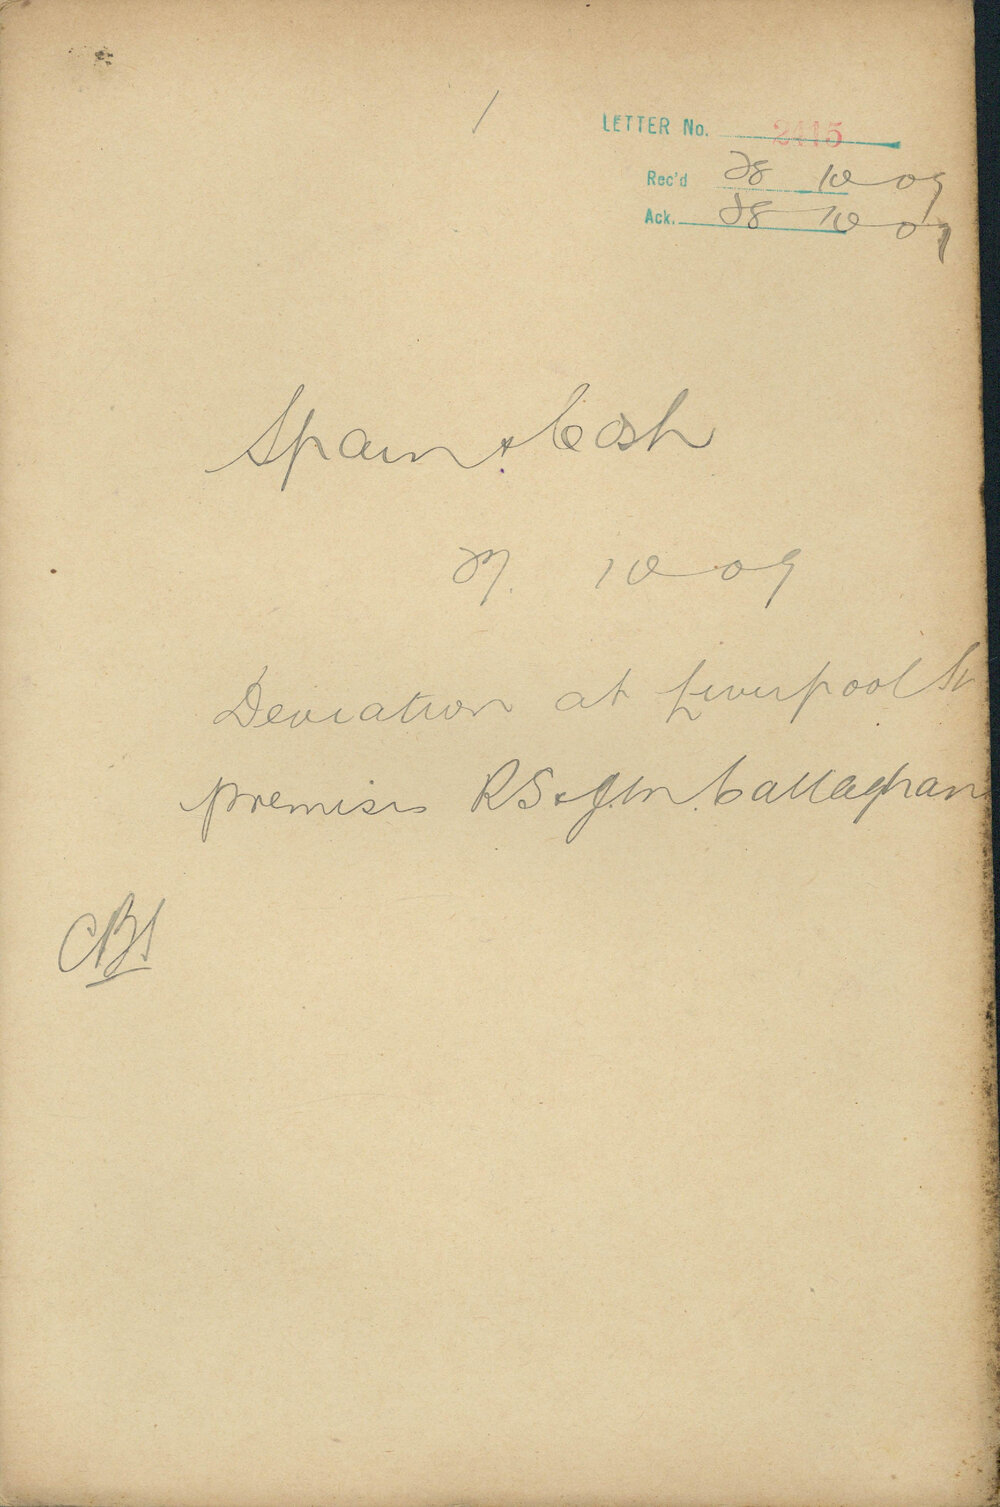 /
LETTER No. 2415
Rec'd 28 10 09
Ack. 28 10 09
Spain & Cosh
27. 10 09
Deviation at Liverpool St
premises R S & J. M. Callaghan